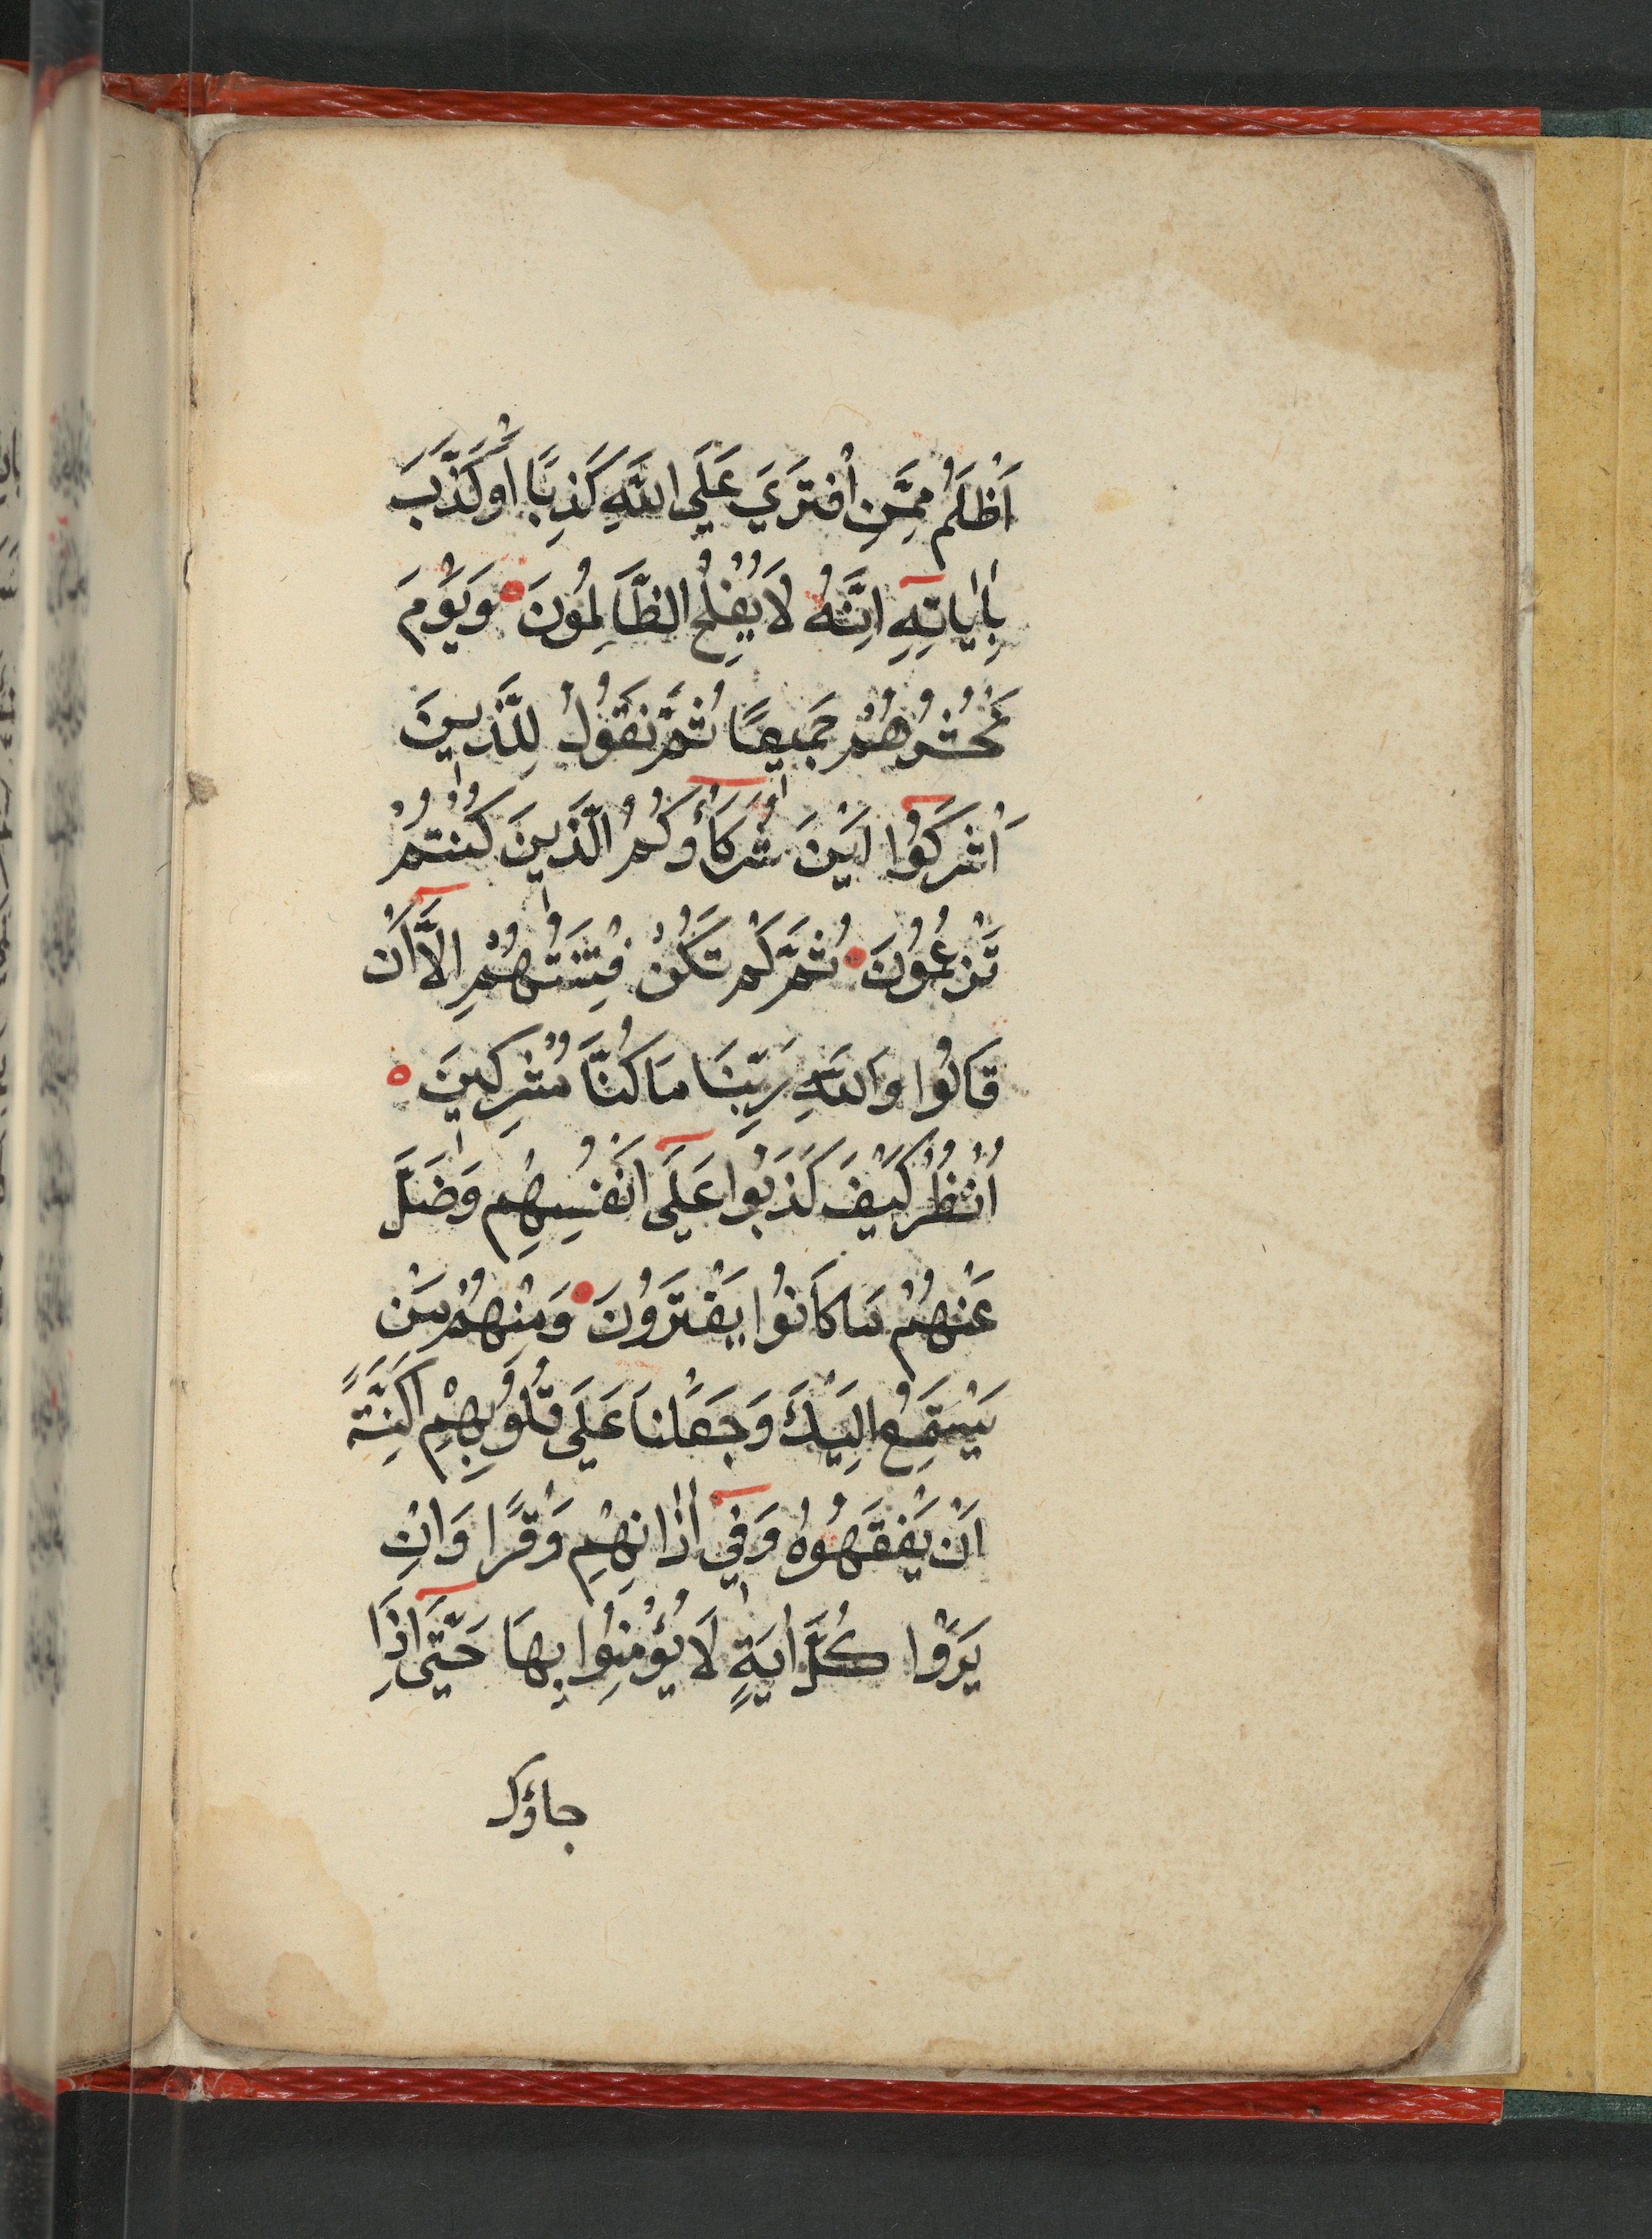 اَظْلَمُ مِمَّنِ افْتَرَيَ عَلَي اللّٰهِ كَذِبًا اَوْكَذَّبَ
بِاٰيَاتِهِ اِنَّهُ لَايُفْلِحُ الظَّالِمُونَ وَيَوْمَ
نَحْشُرُهُمْ جَمِيعًا ثُمَّ نَقُولُ لِلَّذِينَ
اَشْرَكُوْا اَيْنَ شُرَكَاؤُكُمُ الَّذِينَ كُنْتُمْ
تَزْعُمُوْنَ ثُمَّ لَمْ تَكُنْ فِتْنَتُهُمْ اِلَّا اَنْ
قَالُوا وَاللّٰهِ رَبِّنَا مَا كُنَّا مُشْرِكِينَ
اُنْظُرْ كَيْفَ كَذَبُوْا عَلَي اَنْفُسِهِمْ وَضَلَّ
عَنْهُمْ مَا كَانُوْا يَفْتَرُوْنَ وَمِنْهُمْ مَنْ
يَسْتَمِعُ اِلَيْكَ وَجَعَلْنَا عَلَي قُلُوْبِهِمْ اَكِنَّةً
اَنْ يَفْقَهُوْهُ وَفِي اٰذَانِهِمْ وَقْرًا وَاِنْ
يَرَوْا كُلَّ اٰيَةٍ لَا يُؤْمِنُوا بِهَا حَتَّي اِذَا
جاؤك